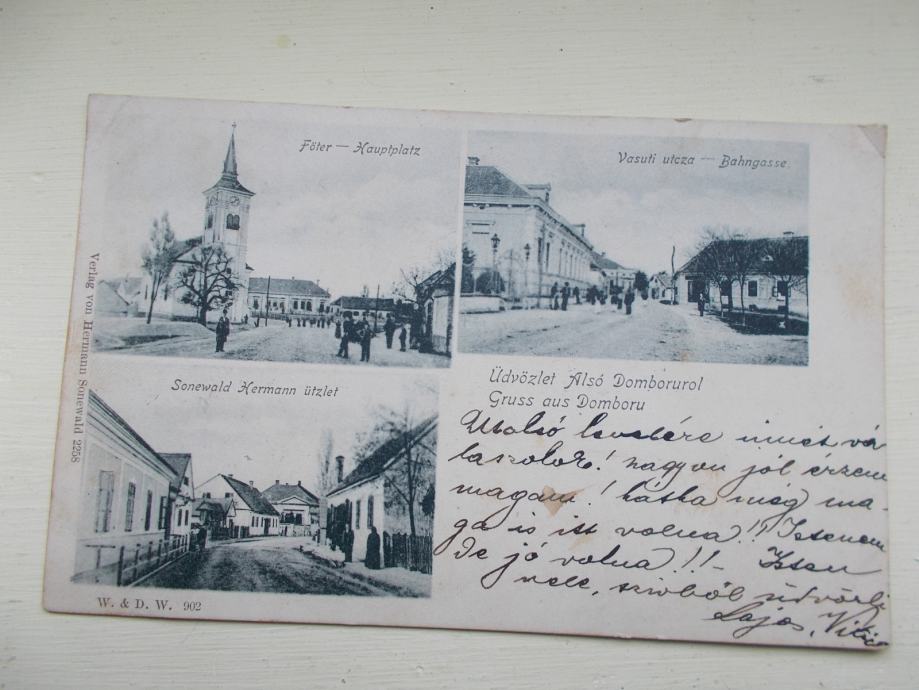 Fötér — Hauptplatz
Vasuti utcza — Bahngasse.
Verlag von Hermann Sonewald 2258
Sonewald Hermann ützlet
Üdvözlet Alsó Domborurol
Gruss aus Domboru
Utolsó levelére imét vá
laszolok! nagyon jól érzem
magam! hátha még ma-
ga is itt volna!! Istenem
de jó volna!!- Isten
vele, szivből üdvözli
Lajos,
W. & D. W. 902